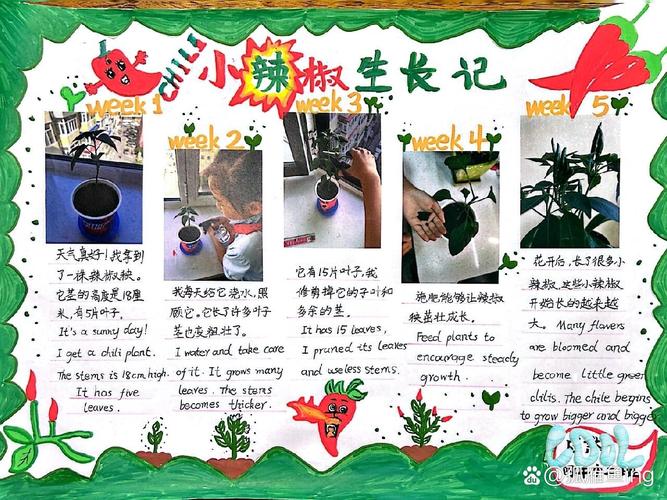 CHILI
小辣椒生长记
week 1
天气真好!我拿到
了一株辣椒秧。
它茎的高度是18厘
米,有5片叶子。
It's a sunny day!
I get a chili plant.
The stems is 18cm high.
It has five
leaves.
week 2
我每天给它浇水,照
顾它。它长了许多叶子
茎也变粗壮了。
I water and take care
of it. It grows many
leaves. The stems
becomes thicker.
week 3
它有15片叶子,我
修剪掉它的子叶和
多余的茎。
It has 15 leaves,
I pruned its leaves
and useless stems.
week 4
施肥能够让辣椒
秧茁壮成长。
Feed plants to
encourage steady
growth.
week 5
花开后,长了很多小
辣椒,这些小辣椒
开始长的越来越
大。Many flowers
are bloomed and
become little green
chilis. The chile begins
to grow bigger and bigger